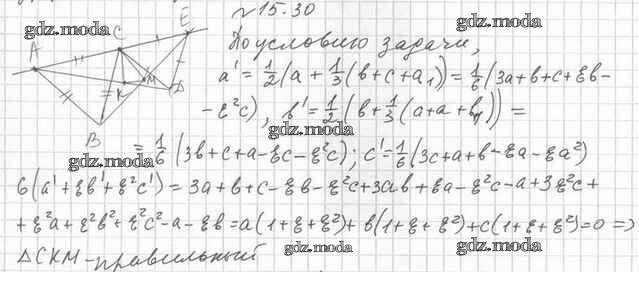 №15.30
gdz.moda
gdz.moda
gdz.moda
A C E
K M D
B
По условию задачи,
a' = 1/2(a + 1/3(b+c+a₁)) = 1/6(3a+b+c+εb-
gdz.moda
gdz.moda
-ε²c), b' = 1/2(b+1/3(a+a+b₁)) =
= 1/6(3b+c+a-εc-ε²c); c' = 1/6(3c+a+b-εa-εa²)
gdz.moda
gdz.moda
6(a'+εb'+ε²c') = 3a+b+c-εb-ε²c+3εb+εa-ε²c-a+3ε²c+
+ε²a+ε²b²+ε²c²-a-εb=a(1+ε+ε²)+b(1+ε+ε²)+c(1+ε+ε²)=0 =>
ΔCKM-правильный
gdz.moda
gdz.moda
gdz.moda